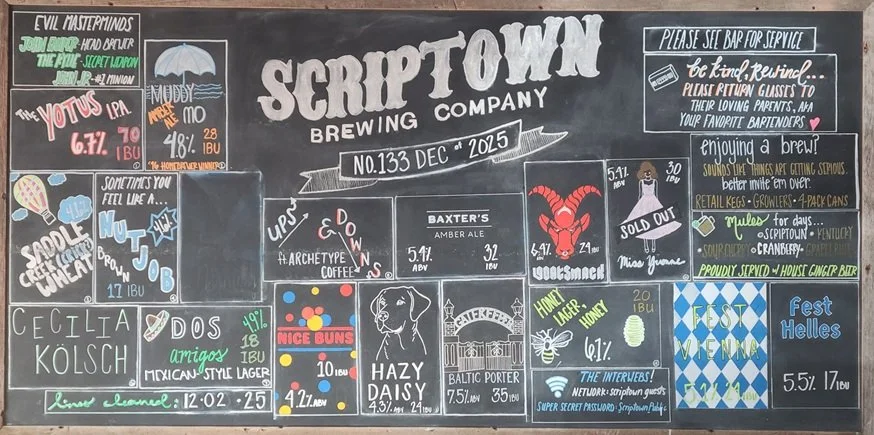 EVIL MASTERMINDS
JOHN BAKER - HEAD BREWER
THE KYLE - SECRET WEAPON
JOHN JR - #1 MINION
THE YOTUS IPA
6.7% 70
IBU
MUDDY
AMBER
ALE
MO
4.8% 28
IBU
'96 HOMEBREWER WINNER
SCRIPTOWN
BREWING COMPANY
NO.133 DEC of 2025
PLEASE SEE BAR FOR SERVICE
be kind, Rewind...
PLEASE RETURN GLASSES TO
THEIR LOVING PARENTS, AKA
YOUR FAVORITE BARTENDERS
enjoying a brew?
SOUNDS LIKE THINGS ARE GETTING SERIOUS.
better invite 'em over.
RETAIL KEGS · GROWLERS · 4-PACK CANS
Mules for days...
SCRIPTOWN · KENTUCKY
SOUR CHERRY · CRANBERRY ·
PROUDLY SERVED w/ HOUSE GINGER BEER
SADDLE
CREEK
WHEAT
SOMETIMES YOU
FEEL LIKE A...
NUT
JOB
BROWN
17 IBU
UPS
&
DOWNS
ft. ARCHETYPE
COFFEE
BAXTER'S
AMBER ALE
5.4% ABV
32 IBU
6.4% ABV
24 IBU
GOATSMACK
5.4% ABV
30 IBU
SOLD OUT
Miss Yvonne
CECILIA
KÖLSCH
DOS
amigos
MEXICAN-STYLE LAGER
4.9%
18
IBU
NICE BUNS
10 IBU
4.2% ABV
HAZY
DAISY
4.3% ABV 24 IBU
GATEKEEPER
BALTIC PORTER
7.5% ABV 35 IBU
HONEY
LAGER,
HONEY
20
IBU
6.1%
THE INTERWEBS!
NETWORK: scriptown guests
SUPER SECRET PASSWORD: Scriptown Public
FEST
VIENNA
Fest
Helles
5.5% 17 IBU
lines cleaned: 12·02·25